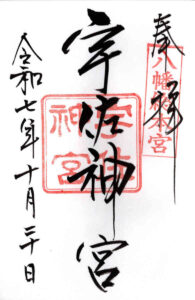 奉拝
八幡総本宮
宇佐神宮
宇佐
神宮
令和七年十月三十日